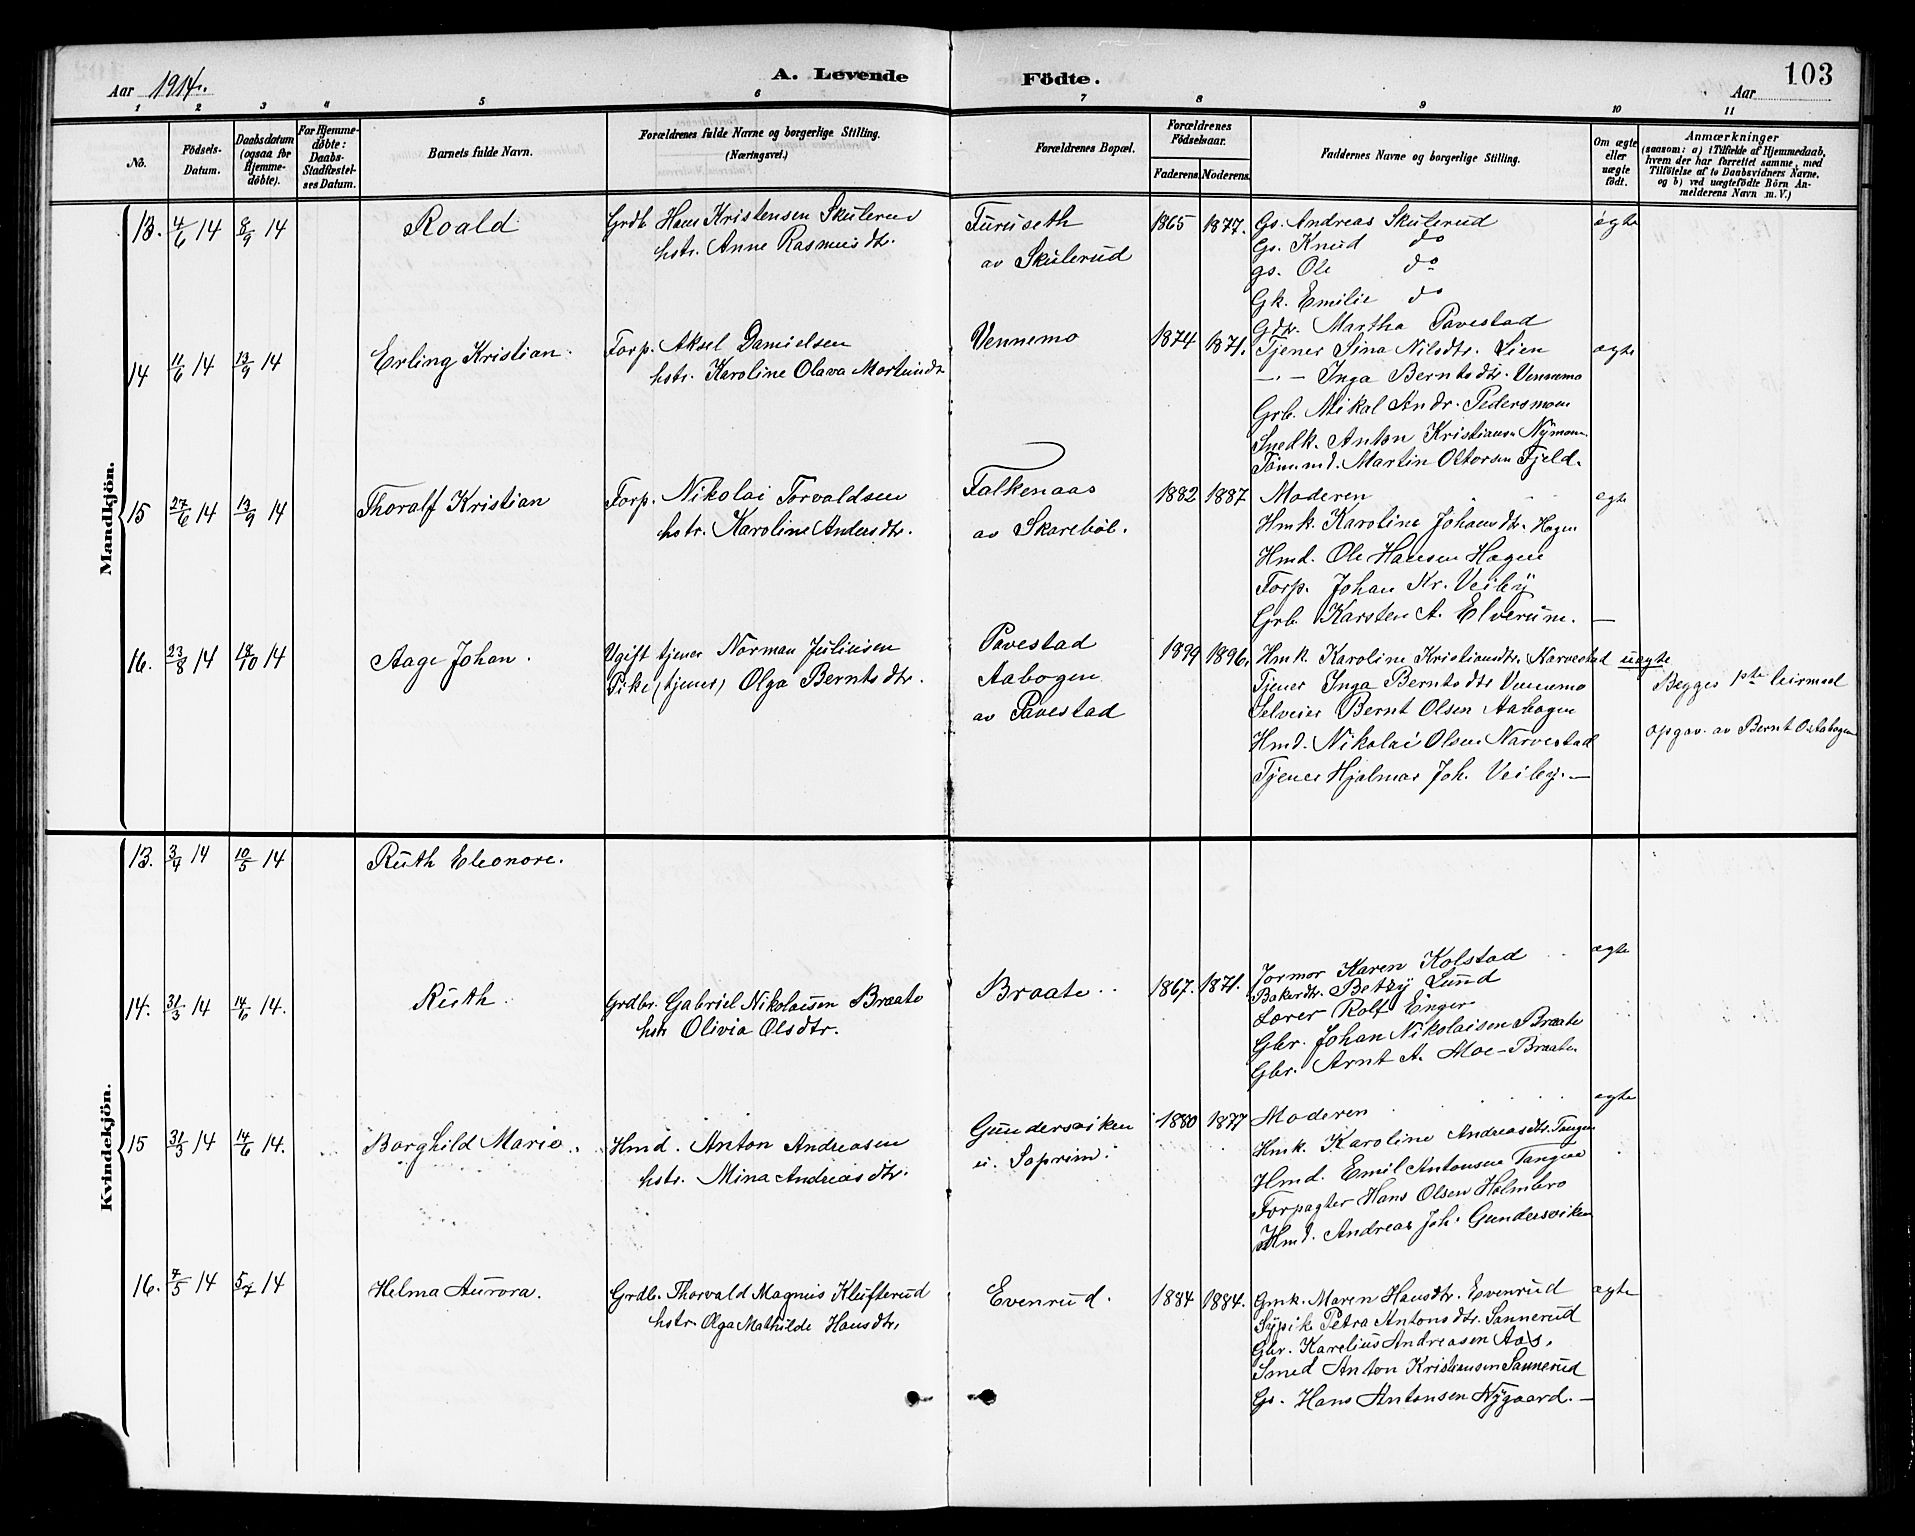 103
Aar 1914.
A. Levende Födte.
Aar
1 2 3 4 5 6 7 8 9 10 11
No.
Födsels-Datum.
Daabsdatum (ogsaa for Hjemme-döbte).
For Hjemme-döbte: Daabs-Stadfæstel-ses Datum.
Barnets fulde Navn.
Forældrenes fulde Navne og borgerlige Stilling.
(Næringsvei.)
Forældrenes Bopæl.
Forældrenes Födselsaar.
Faderens. Moderens.
Faddernes Navne og borgerlige Stilling.
Om ægte eller uægte födt.
Anmærkninger
(saasom: a) i Tilfælde af Hjemmedaab, hvem der har forrettet samme, med Tilföielse af to Daabsvidners Navne. og b) ved uægtefödte Börn An-melderens Navn m. V.)
Mandkjön.
13. 4/6 14 8/9 14 Roald Grdb. Hans Kristensen Skulerud Furuseth 1865 1877. Gs. Andreas Skulerud ægte
hstr. Anne Rasmusdtr. av Skulerud Gs. Knud do
gs. Ole do
Gk. Emilie do
Gdr. Martha Pavestad
14 11/6 14 13/9 14 Erling Kristian. Forp. Aksel Danielsen Vennemo 1874 1871. Tjener Sina Nilsdtr. Lien ægte
hstr. Karoline Olava Martinsdtr — Inga Berntsdtr. Vennemo
Grb. Mikal Andr. Pedersmoen
Snedk. Anton Kristiansen Nymoen
Tömmd. Martin Ottersen Fjeld.
15 27/6 14 13/9 14 Thoralf Kristian Forp. Nikolai Torvaldsen Falkenaas 1882 1887 Moderen ægte
hstr. Karoline Andersdtr. av Skareböl. Hmk. Karoline Johansdtr. Hagen
Hmd. Ole Hansen Hagen
Forp. Johan Kr. Veiby
Grb. Karsten A. Elverum. —
16. 23/8 14 18/10 14 Aage Johan. Ugift tjener Norman Juliusen Pavestad 1899 1896. Hmk. Karoline Kristiansdtr. Narvestad uægte
Pike (tjener) Olga Berntsdtr. Aabogen Tjener Inga Berntsdtr Vennemo Begges 1ste leirmaal
av Pavestad Selveier Bernt Olsen Aabogen
Hmd. Nikolai Olsen Narvestad opgav. av Bernt O. Aabogen
Tjener Hjalmar Joh. Veiby. —
Kvindekjön.
13. 3/4 14 10/5 14 Ruth Eleonore.
14. 31/3 14 14/6 14. Ruth Grdbr. Gabriel Nikolaisen Braate Braate 1867. 1871. Jormor Karen Kolstad ægte
hstr Olivia Olsdtr. Bakerdtr. Betzy Lund
Lærer Rolf Enger
Gbr. Johan Nikolaisen Braate
Gbr. Arnt A. Moe-Braaten
15 31/3 14 14/6 14. Borghild Marie. Hmd. Anton Andreasen Gundersviken 1880 1877 Moderen ægte
hstr. Mina Andreasdtr. u. Soprim. Hmk. Karoline Andreasdtr. Tangen
Hmd. Emil Antonsen Tangen
Forpagter Hans Olsen Holmbro
Hmd. Andreas Joh. Gundersviken
16. 7/5 14 5/7 14 Helma Aurora. Grdb. Thorvald Magnus Kleifterud Evenrud. 1884 1884. Gmk. Maren Hansdtr. Evenrud ægte
hstr. Olga Mathilde Hansdtr. Sypik Petra Antonsdtr. Sannerud
Gbr. Karelius Andreasen Aas.
Smed Anton Kristiansen Sannerud
Gs. Hans Antonsen Nygaard. —